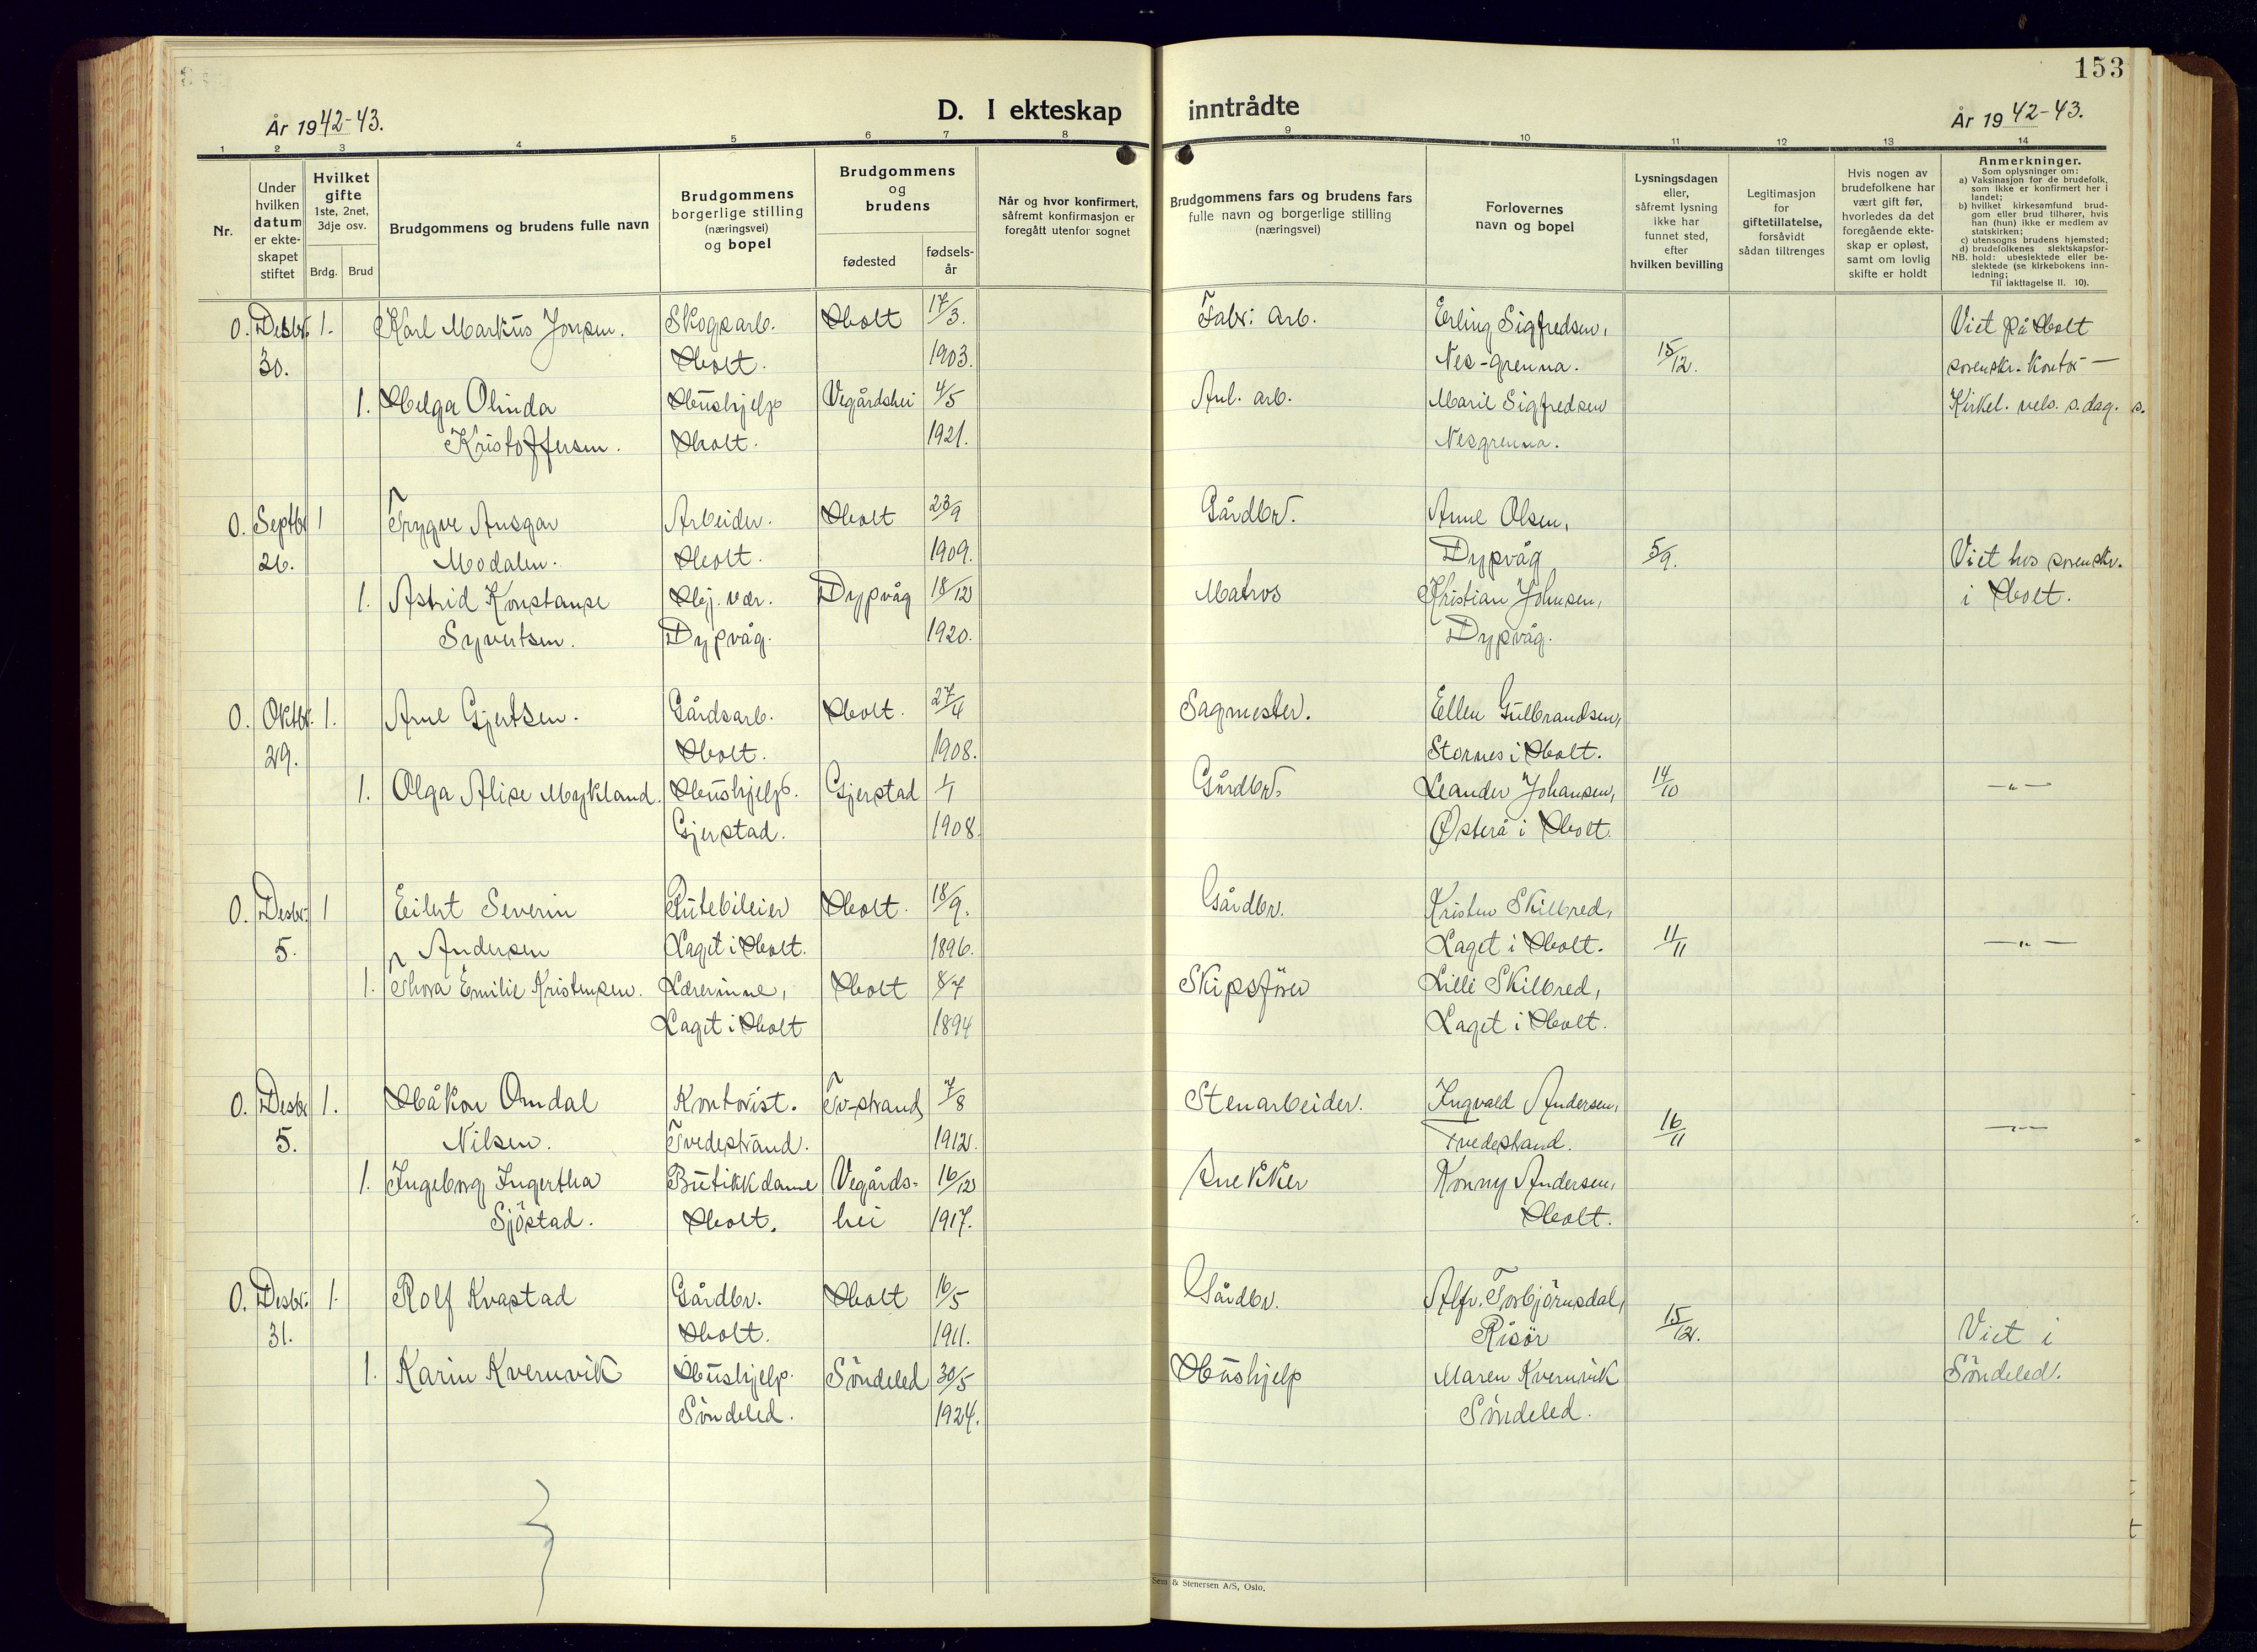 153
År 1942-43.
D. I ekteskap inntrådte
År 1942-43.
1 2 3 4 5 6 7 8 9 10 11 12 13 14
Nr.
Under
hvilken
datum
er ekte-
skapet
stiftet
Hvilket
gifte
1ste, 2net,
3dje osv.
Brdg. Brud
Brudgommens og brudens fulle navn
Brudgommens
borgerlige stilling
(næringsvei)
og bopel
Brudgommens
og
brudens
fødested
fødsels-
år
Når og hvor konfirmert,
såfremt konfirmasjon er
foregått utenfor sognet
Brudgommens fars og brudens fars
fulle navn og borgerlige stilling
(næringsvei)
Forlovernes
navn og bopel
Lysningsdagen
eller,
såfremt lysning
ikke har
funnet sted,
efter
hvilken bevilling
Legitimasjon
for
giftetillatelse,
forsåvidt
sådan tiltrenges
Hvis nogen av
brudefolkene har
vært gift før,
hvorledes da det
foregående ekte-
skap er opløst,
samt om lovlig
skifte er holdt
Anmerkninger.
Som oplysninger om:
a) Vaksinasjon for de brudefolk,
som ikke er konfirmert her i
landet;
b) hvilket kirkesamfund brud-
gom eller brud tilhører, hvis
han (hun) ikke er medlem av
statskirken;
c) utensogns brudens hjemsted;
d) brudefolkenes slektskapsfor-
NB. hold: ubeslektede eller be-
slektede (se kirkebokens inn-
ledning;
Til iakttagelse II. 10).
0. Desbr. 1. Karl Markus Jonsen. Skogsarb. Holt 17/3. Fabr. arb. Erling Sigfredsen, Viet på Holt
30. Holt. 1903. Nes-grenna. 15/12. sorenskr. Kontor —
1. Helga Olinda Hushjelp Vegårdshei 4/5 Anl. arb. Marie Sigfredsen Kirkel. vels. s.dag. s.
Kristoffersen. Holt. 1921. Nesgrenna.
0. Septbr 1 Trygve Ansgar Arbeider. Holt 23/9 Gårdbr. Arne Olsen,
26. Modalen. Holt. 1909. Dypvåg 5/9. Viet hos sorenskr.
1. Astrid Konstanse Hj. vær. Dypvåg 18/12 Matros Kristian Johnsen, i Holt.
Syvertsen. Dypvåg. 1920. Dypvåg.
0. Oktbr. 1. Arne Gjertsen. Gårdsarb. Holt. 27/4 Sagmester. Ellen Gulbrandsen,
29. Holt. 1908. Stornes i Holt.
1. Olga Alise Mykland. Hushjelp. Gjerstad 1/1 Gårdbr. Leander Johansen, 14/10 —"—
Gjerstad. 1908. Østerå i Holt.
0. Desbr. 1 Eilert Severin Rutebileier Holt. 18/9. Gårdbr. Kristen Skilbred,
5. Andersen Laget i Holt. 1896. Laget i Holt. 11/11 —"—
1. Thora Emilie Kristensen. Lærerinne, Holt 8/7 Skipsfører Lilli Skilbred,
Laget i Holt 1894 Laget i Holt.
0. Desbr 1. Håkon Omdal Kontorist. Tv-strand 7/8 Stenarbeider. Ingvald Andersen,
5. Nilsen. Tvedestrand. 1912. Tvedestand. 16/11 —"—
1. Ingeborg Ingertha Butikkdame Vegårds- 16/12 Snekker Konny Andersen,
Sjöstad. Holt. hei 1917. Holt.
0. Desbr. 1. Rolf Kvastad Gårdbr. Holt 16/5 Gårdbr. Alfr. Torbjörnsdal,
31. Holt. 1911. Risör 15/12. Viet i
1. Karin Kvernvik Hushjelp. Söndeled 30/5 Hushjelp Maren Kvernvik Söndeled.
Söndeled. 1924. Söndeled.
Sem & Stenersen A/S, Oslo.